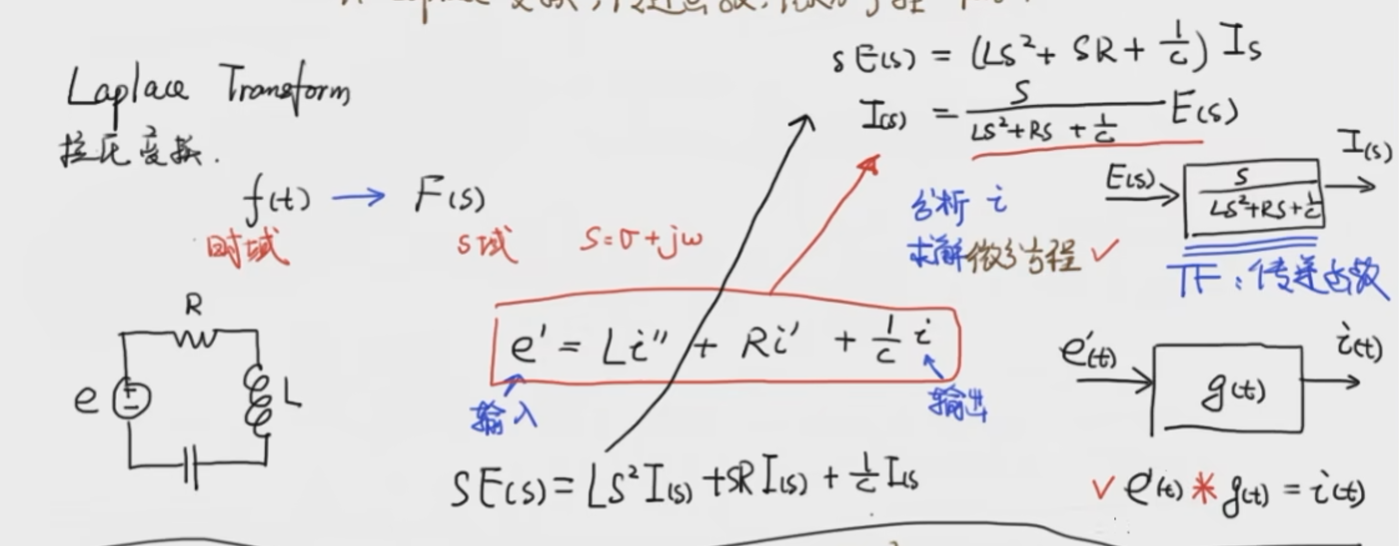 Laplace Transform
拉氏变换.
f(t) → F(s)
时域 s域 S=σ+jω
R
e
L
e' = Li'' + Ri' + 1/c i
输入
输出
SE(s) = LS²I(s) + SRI(s) + 1/c I(s
sE(s) = (LS² + SR + 1/c) Is
I(s) = S/(LS²+RS+1/c) E(s)
分析 i
求解微分方程 ✓
E(s) → S/(LS²+RS+1/c) → I(s)
TF:传递函数
e'(t) → g(t) → i(t)
✓ e'(t) * g(t) = i(t)